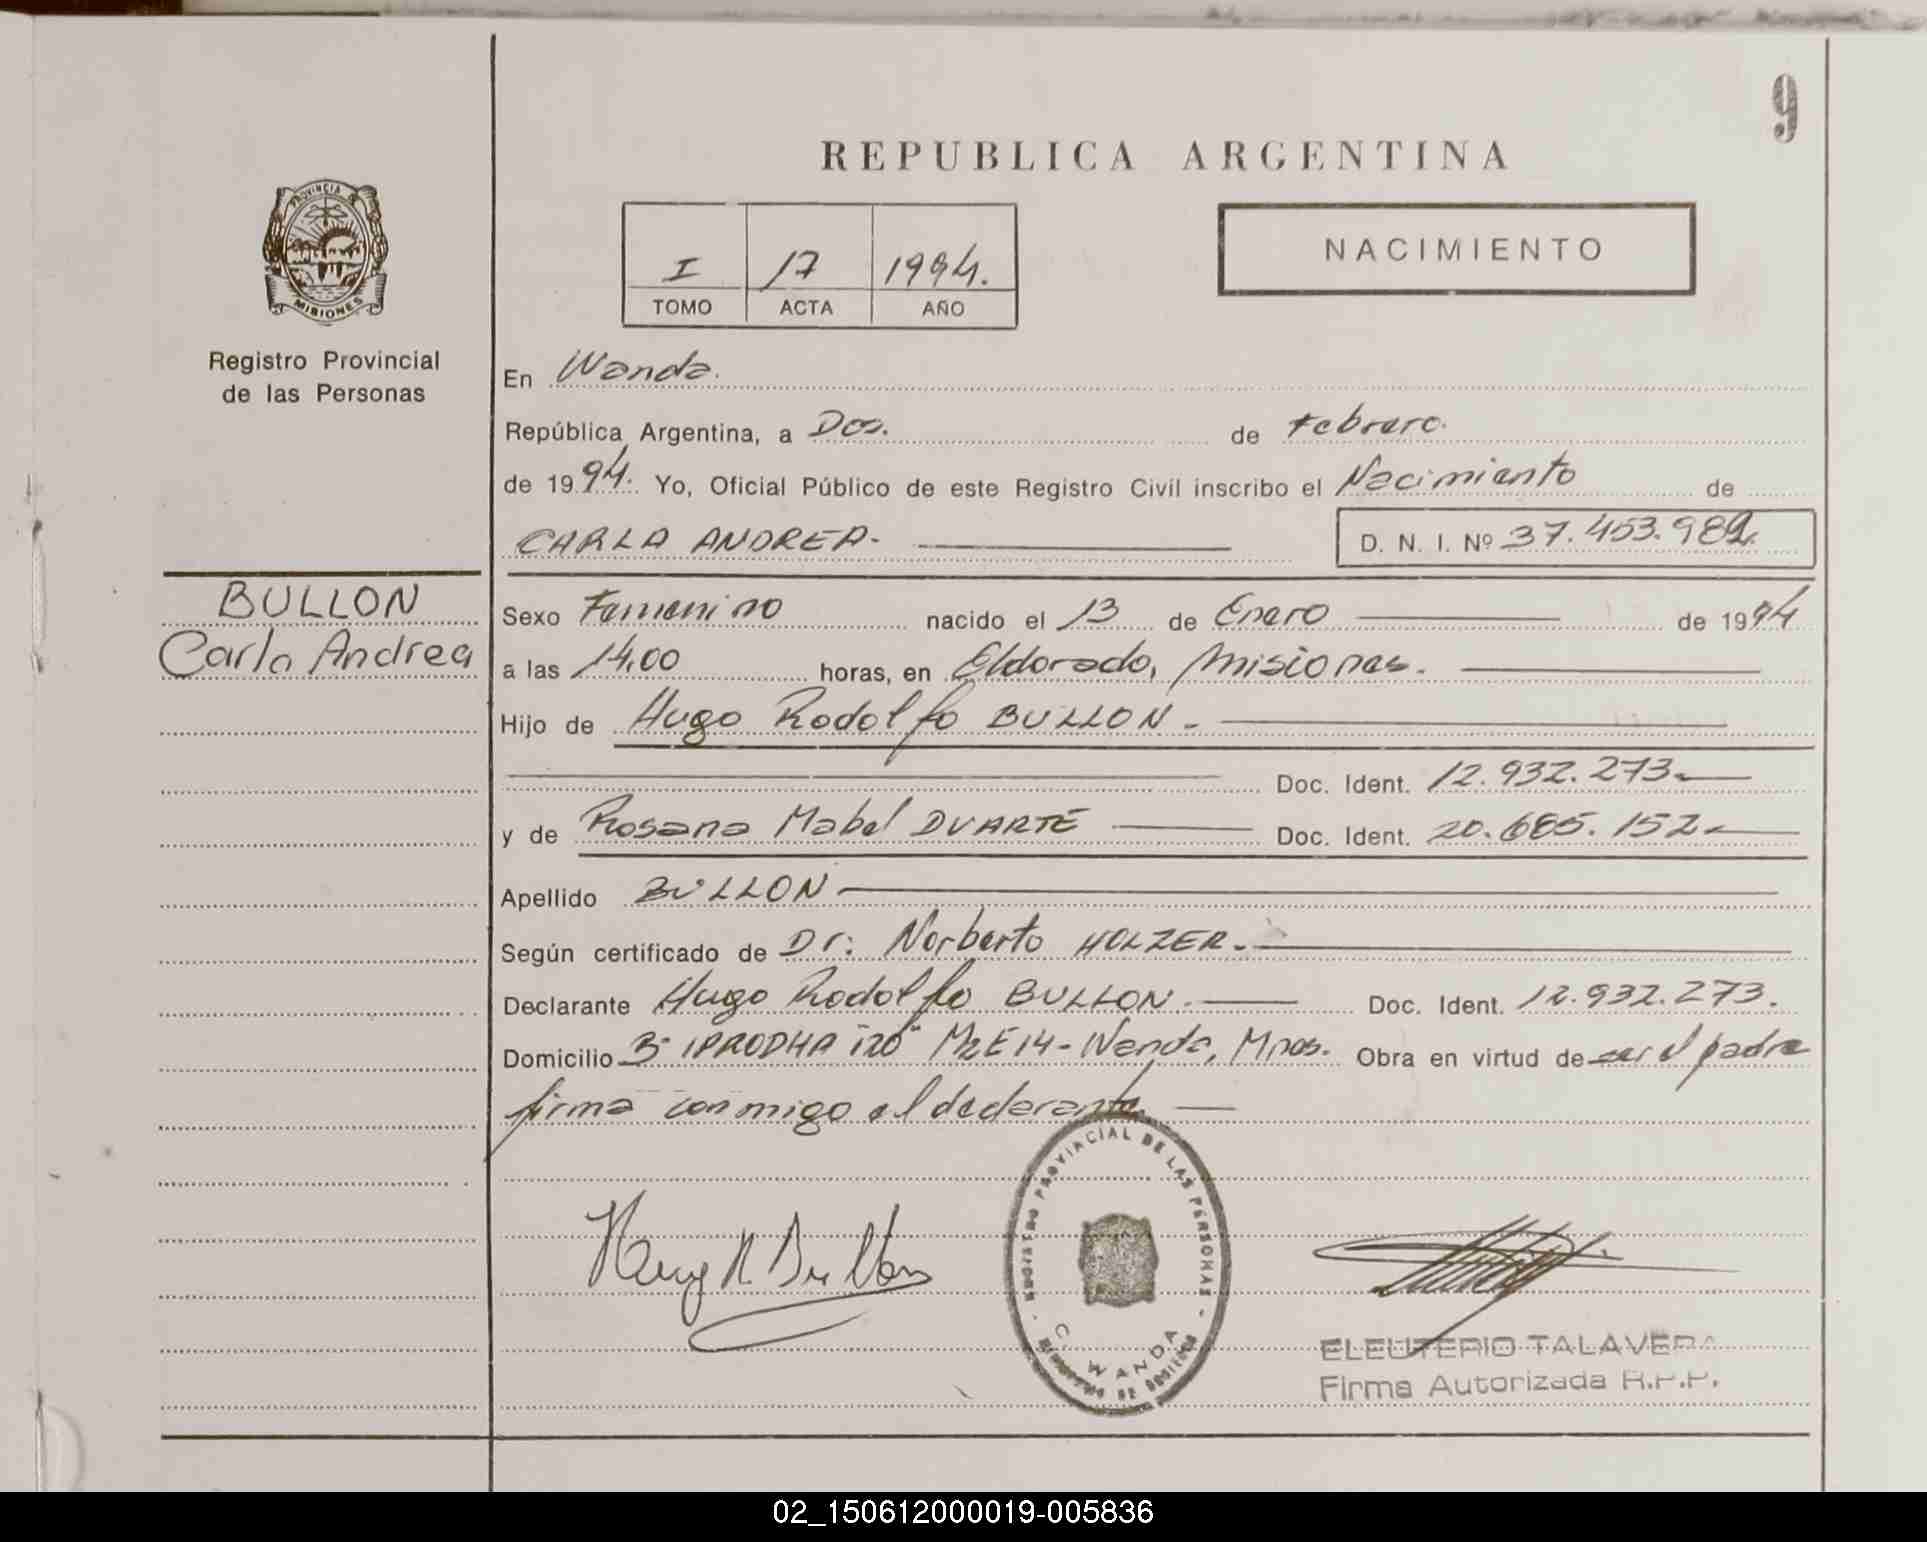 9
REPUBLICA ARGENTINA
PROVINCIA
MISIONES
Registro Provincial
de las Personas
I 17 1994.
TOMO ACTA AÑO
NACIMIENTO
En Wanda.
República Argentina, a Dos. de Febrero.
de 1994. Yo, Oficial Público de este Registro Civil inscribo el Nacimiento de
CARLA ANDREA.
D. N. I. Nº 37.453.982.
BULLON
Carla Andrea
Sexo Femenino nacido el 13 de Enero de 1994
a las 14,00 horas, en Eldorado, Misiones.
Hijo de Hugo Rodolfo BULLON.
Doc. Ident. 12.932.273
y de Rosana Mabel DUARTE Doc. Ident. 20.685.152
Apellido BULLON
Según certificado de Dr: Norberto HOLZER.
Declarante Hugo Rodolfo BULLON. Doc. Ident. 12.932.273.
Domicilio Bº IPRODHA "120" MzE 14 - Wanda, Mnes. Obra en virtud de ser el padre
firma conmigo el declarante.
Hug R Bullon
REGISTRO PROVINCIAL DE LAS PERSONAS
WANDA
ELEUTERIO TALAVERA
Firma Autorizada R.P.P.
02_150612000019-005836